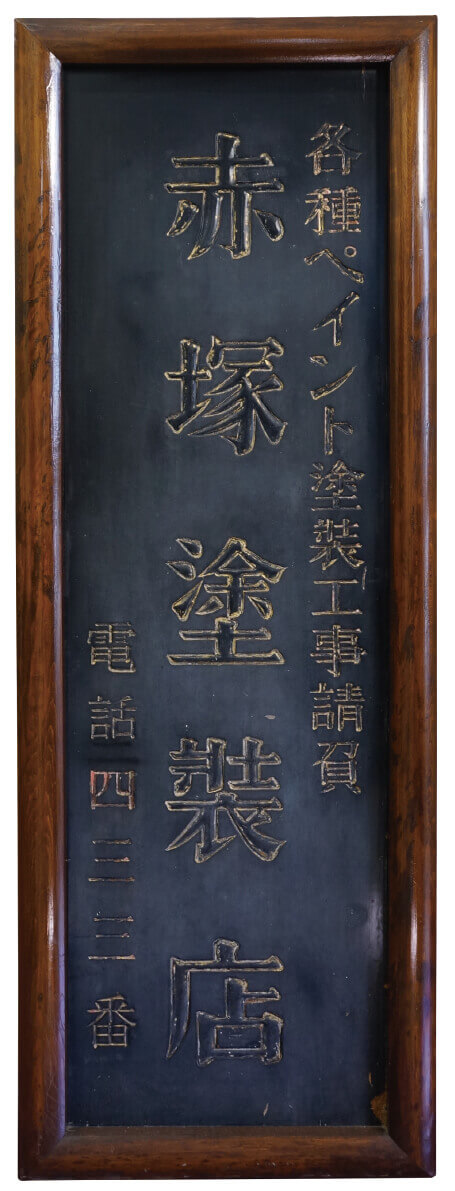 各種ペイント塗装工事請負
赤塚塗装店
電話四三三番